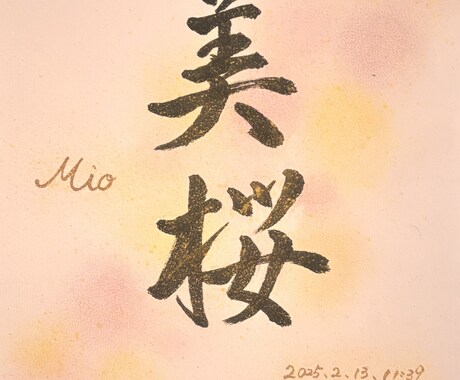 美桜
Mio
2025.2.13.11:39